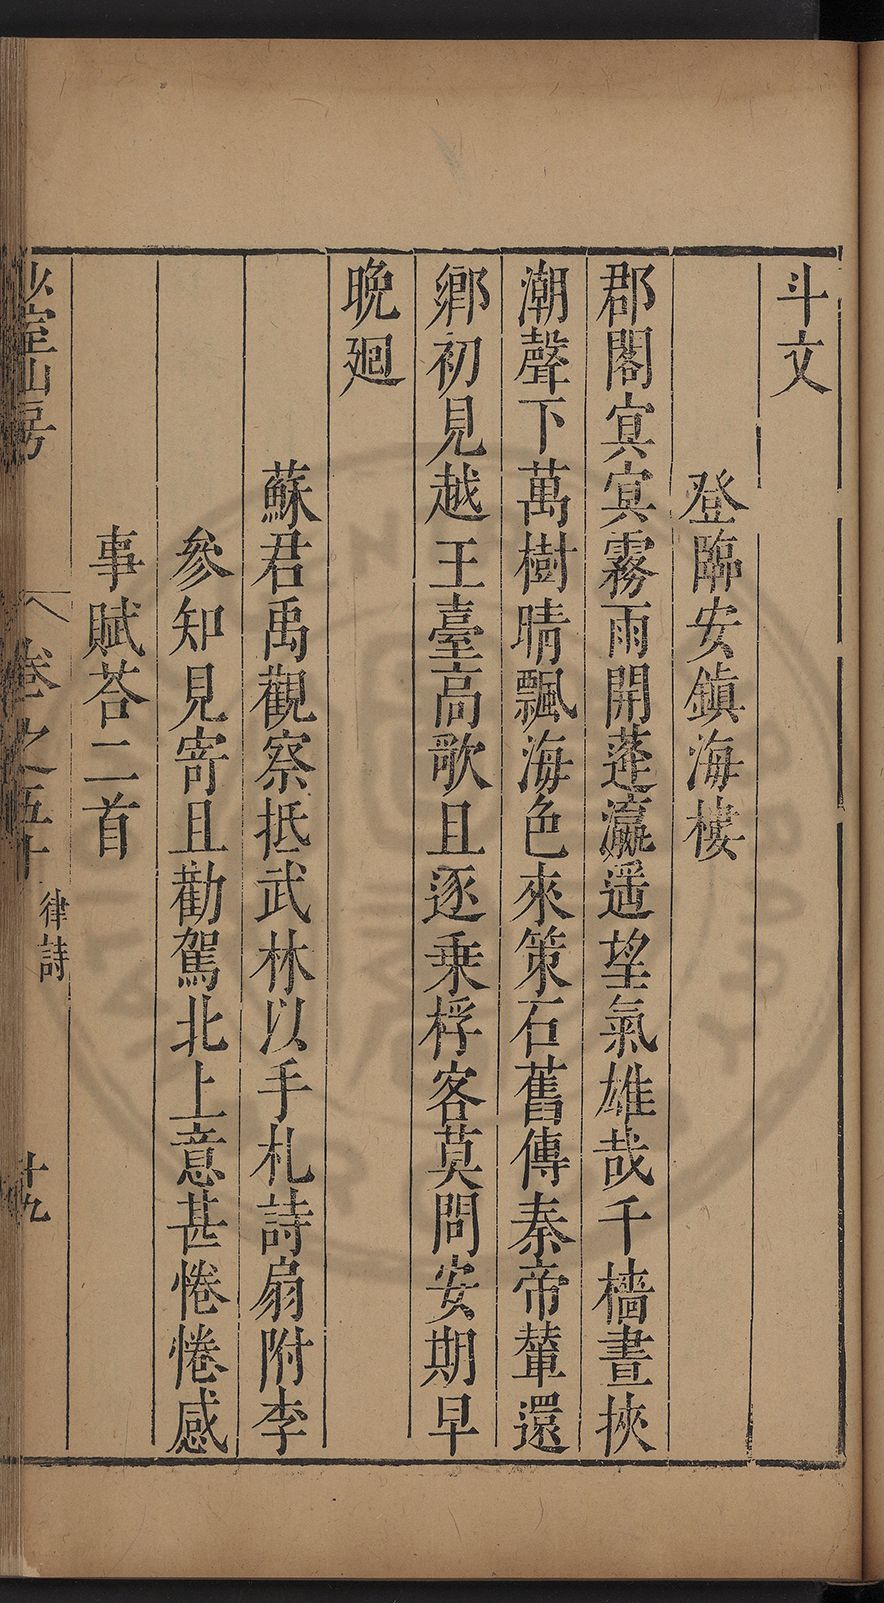 斗文
登臨安鎮海樓
郡閣寘寘霧雨開蓬瀛遥望氣雄哉千檣晝挾
潮聲下萬樹晴飄海色來策石舊傳秦帝輦還
鄉初見越王臺高歌且逐乗桴客莫問安期早
晚廻
蘇君禹觀察抵武林以手札詩扇附李
參知見寄且勸駕北上意甚惓惓感
事賦荅二首
少室山房
卷之五十
律詩
十九